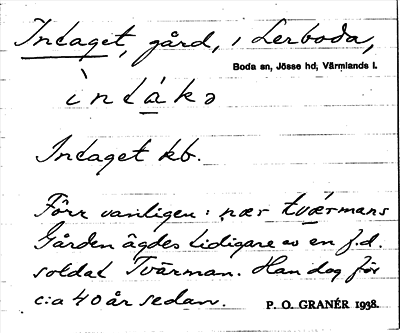 Intaget, gård, i Lerboda,
Boda sn, Jösse hd, Värmlands l.
ìntákə
Intaget kb.
Förr vanligen: nær tværmans
Gården ägdes tidigare av en f.d.
soldat Tvärman. Han dog för
c:a 40 år sedan.
P. O. GRANÉR 1938.